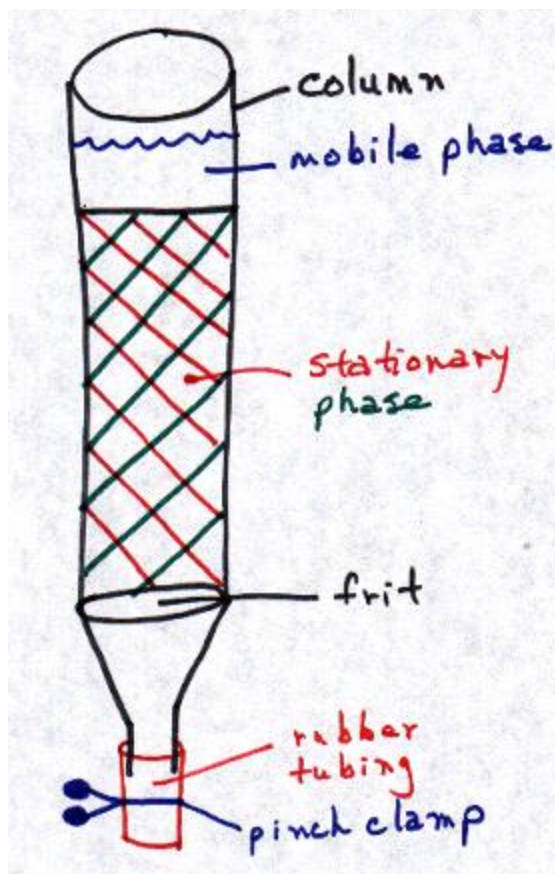 column
mobile phase
stationary
phase
frit
rubber
tubing
pinch clamp